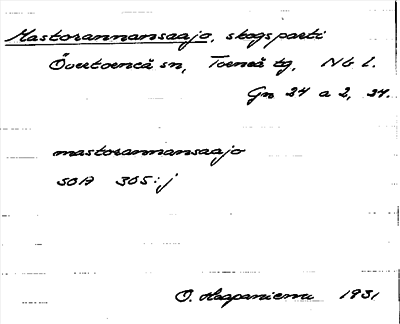 Mastorannansaajo, skogsparti
Övertorneå sn, Torneå tg, Nb l.
Gn 24 a 2, 34.
mastorannansaajo
SOA 305:j
O. Haapaniemi 1931